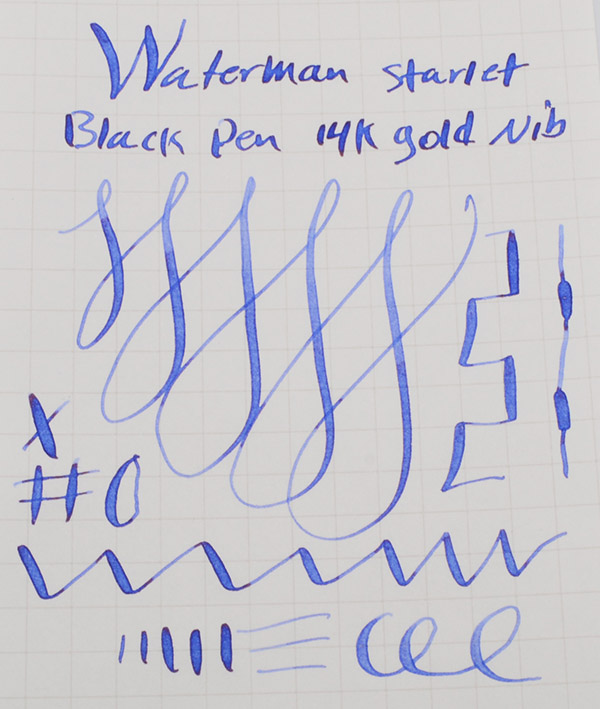 Waterman Starlet
Black Pen 14K gold Nib
x
#0